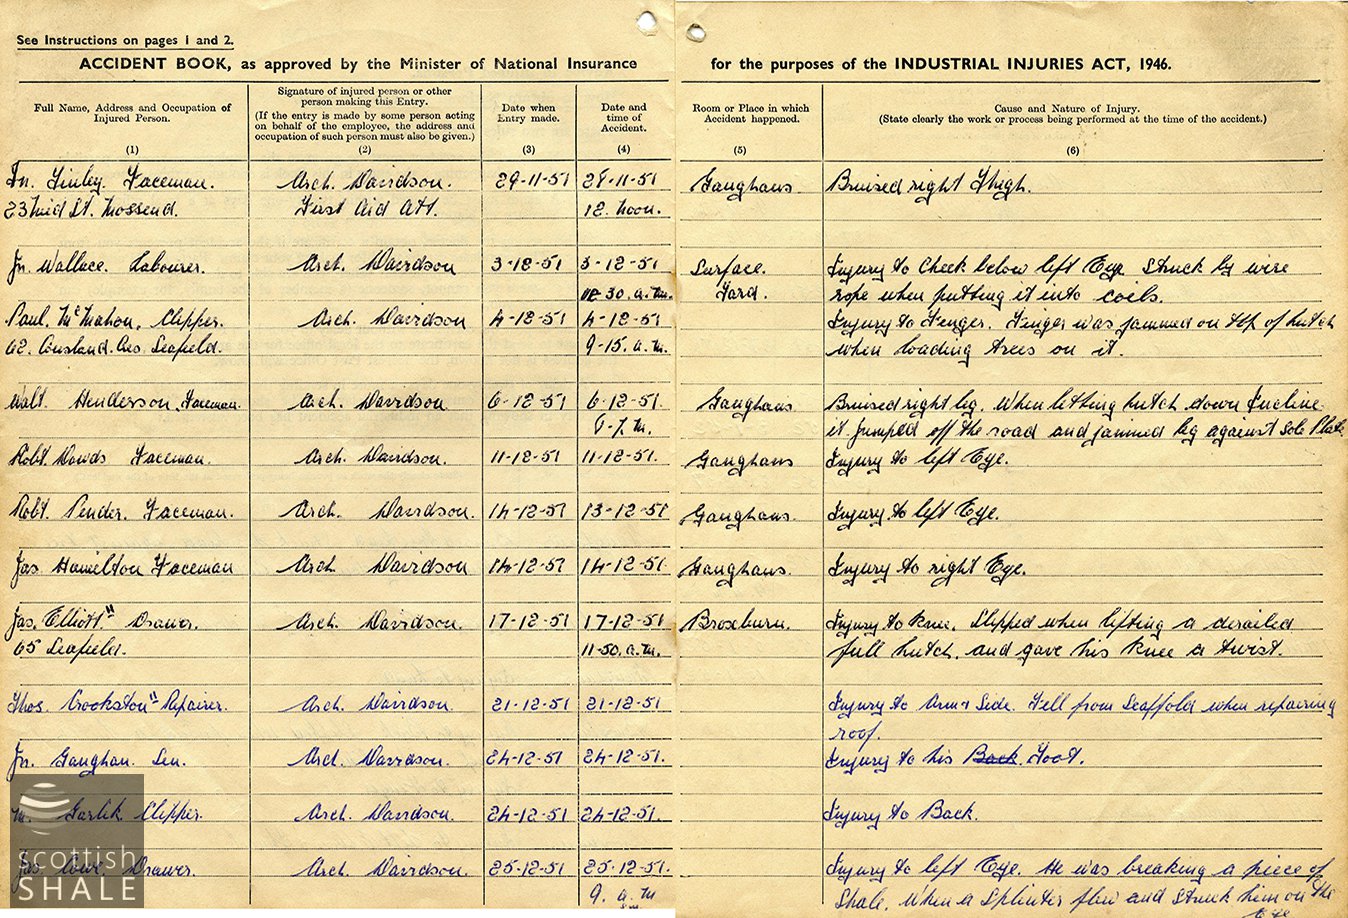 See Instructions on pages 1 and 2.
ACCIDENT BOOK, as approved by the Minister of National Insurance for the purposes of the INDUSTRIAL INJURIES ACT, 1946.
Full Name, Address and Occupation of Injured Person.
(1)
Signature of injured person or other person making this Entry.
(If the entry is made by some person acting on behalf of the employee, the address and occupation of such person must also be given.)
(2)
Date when Entry made.
(3)
Date and time of Accident.
(4)
Room or Place in which Accident happened.
(5)
Cause and Nature of Injury.
(State clearly the work or process being performed at the time of the accident.)
(6)
Jn. Finley. Faceman. Arch. Davidson. 29-11-51 28-11-51 Gaughans. Bruised right Thigh.
23 Mid St. Mossend. First Aid Att. 12. Noon.
Jn. Wallace. Labourer. Arch. Davidson 3-12-51 3-12-51 Surface. Injury to Cheek below left Eye Struck by wire
30. a.m. Yard. rope when putting it into coils.
Paul. McMahon. Clipper. Arch. Davidson 4-12-51 4-12-51 Injury to Finger. Finger was jammed on top of hutch
62. Cousland Cres Seafield. 9-15. a.m. when loading trees on it.
Walt. Henderson. Faceman. Arch. Davidson 6-12-51 6-12-51. Gaughans Bruised right leg. When letting hutch down Incline
6-7. m. it jumped off the road and jammed leg against Sole Plate.
Robt. Dowds Faceman. Arch. Davidson. 11-12-51 11-12-51. Gaughans Injury to left Eye.
Robt. Pender. Faceman. Arch. Davidson. 14-12-51 13-12-51 Gaughans. Injury to left Eye.
Jas Hamilton Faceman Arch Davidson 14-12-51 14-12-51. Gaughans. Injury to right Eye.
Jas. Elliott" Drawer. Arch. Davidson. 17-12-51 17-12-51 Broxburn. Injury to knee. Slipped when lifting a derailed
65 Seafield. 11-50. a.m. full hutch, and gave his knee a twist.
Thos. Crookston" Repairer. Arch. Davidson. 21-12-51 21-12-51 Injury to Arm & Side. Fell from Scaffold when repairing
roof.
Jn. Gaughan. Sen. Arch. Davidson. 24-12-51 24-12-51. Injury to his Back Foot.
M. Garlik. Clipper. Arch. Davidson. 24-12-51 24-12-51. Injury to Back.
Jas. Lowe. Drawer. Arch. Davidson. 25-12-51 25-12-51. Injury to left Eye. He was breaking a piece of
9. a.m Shale. When a Splinter flew and Struck him on the
Eye
scottish
SHALE